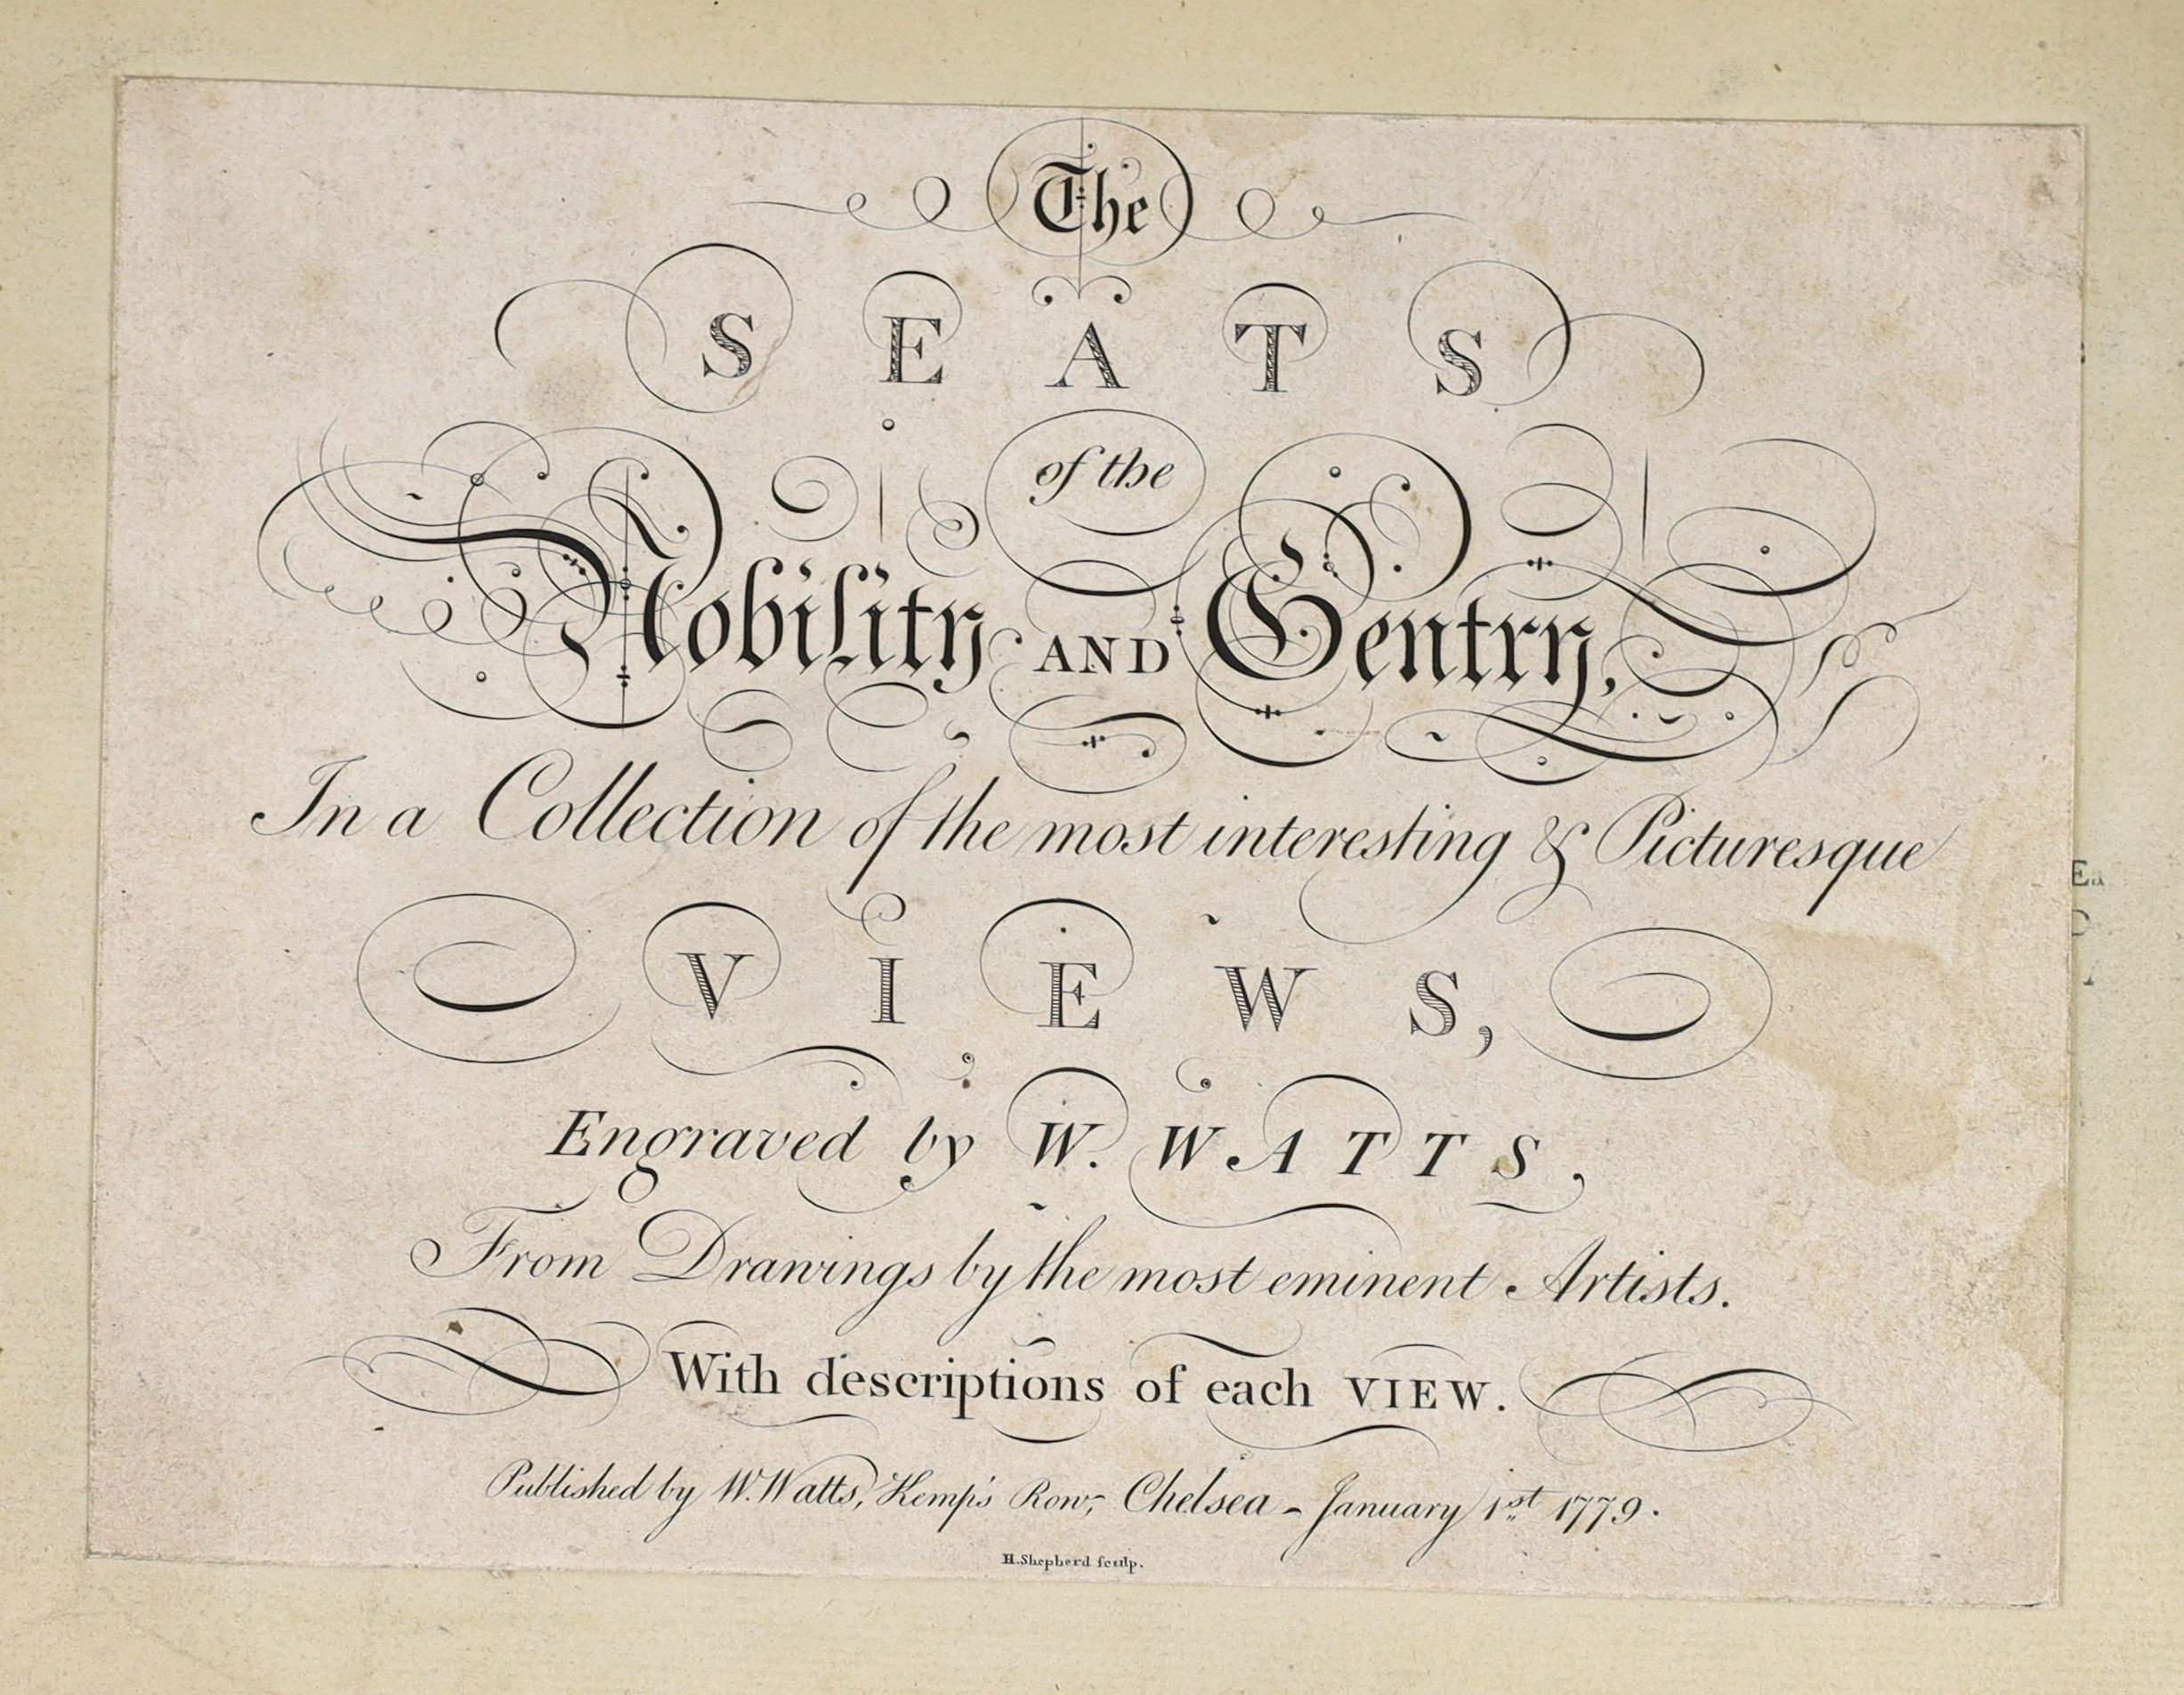 The
SEATS
of the
Nobility AND Gentry,
In a Collection of the most interesting & Picturesque
VIEWS,
Engraved by W. WATTS,
From Drawings by the most eminent Artists.
With descriptions of each VIEW.
Published by W. Watts, Kemp's Row, Chelsea - January 1st 1779.
H. Shepherd sculp.